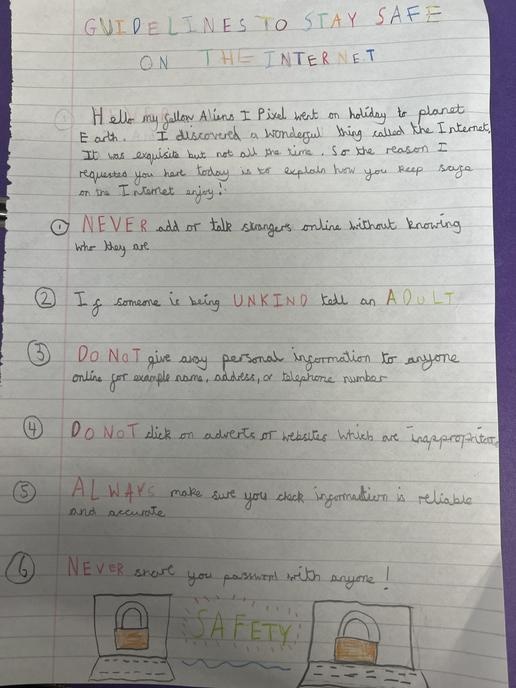 GUIDELINES TO STAY SAFE
ON THE INTERNET
Hello my fellow Aliens I Pixel went on holiday to planet
Earth. I discovered a wonderful thing called the Internet,
It was exquisite but not all the time. So the reason I
requested you here today is to explain how you keep safe
on the Internet enjoy!
1 NEVER add or talk strangers online without knowing
who they are
2 If someone is being UNKIND tell an ADULT
3 DO NOT give away personal information to anyone
online for example name, address, or telephone number
4 DO NOT click on adverts or websites which are
5 ALWAYS make sure you check information is reliable
and accurate
6 NEVER share you password with anyone!
SAFETY